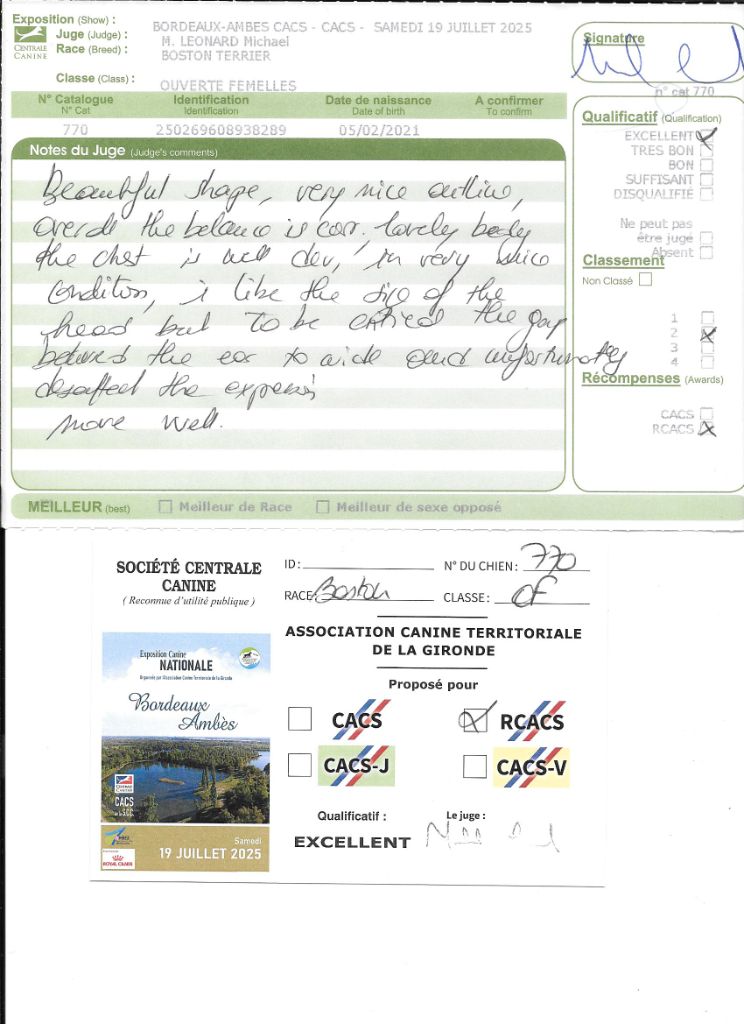 Exposition (Show) : BORDEAUX-AMBES CACS - CACS - SAMEDI 19 JUILLET 2025
Juge (Judge) : M. LEONARD Michael
Race (Breed) : BOSTON TERRIER
CENTRALE
CANINE
Classe (Class) : OUVERTE FEMELLES
Signature
n° cat 770
N° Catalogue Identification Date de naissance A confirmer
N° Cat Identification Date of birth To confirm
770 250269608938289 05/02/2021
Notes du Juge (Judge's comments)
Beautiful shape, very nice outline,
overall the balance is corr. lovely body
the chest is well dev, in very nice
condition, i like the size of the
head but to be critical the gap
between the ear to wide and unfortunately
the expressi
move well.
Qualificatif (Qualification)
EXCELLENT
TRES BON
BON
SUFFISANT
DISQUALIFIÉ
Ne peut pas
être jugé
Absent
Classement
Non Classé
1
2
3
4
Récompenses (Awards)
CACS
RCACS
MEILLEUR (best) Meilleur de Race Meilleur de sexe opposé
SOCIÉTÉ CENTRALE
CANINE
( Reconnue d'utilité publique )
ID : N° DU CHIEN : 770
RACE: Boston CLASSE : OF
ASSOCIATION CANINE TERRITORIALE
DE LA GIRONDE
Proposé pour
CACS RCACS
CACS-J CACS-V
Qualificatif : Le juge :
EXCELLENT
Exposition Canine
NATIONALE
Organisée par l'Association Canine Territoriale de la Gironde
Bordeaux
Ambès
CENTRALE
CANINE
CACS
de L S.C.C.
Samedi
19 JUILLET 2025
ROYAL CANIN